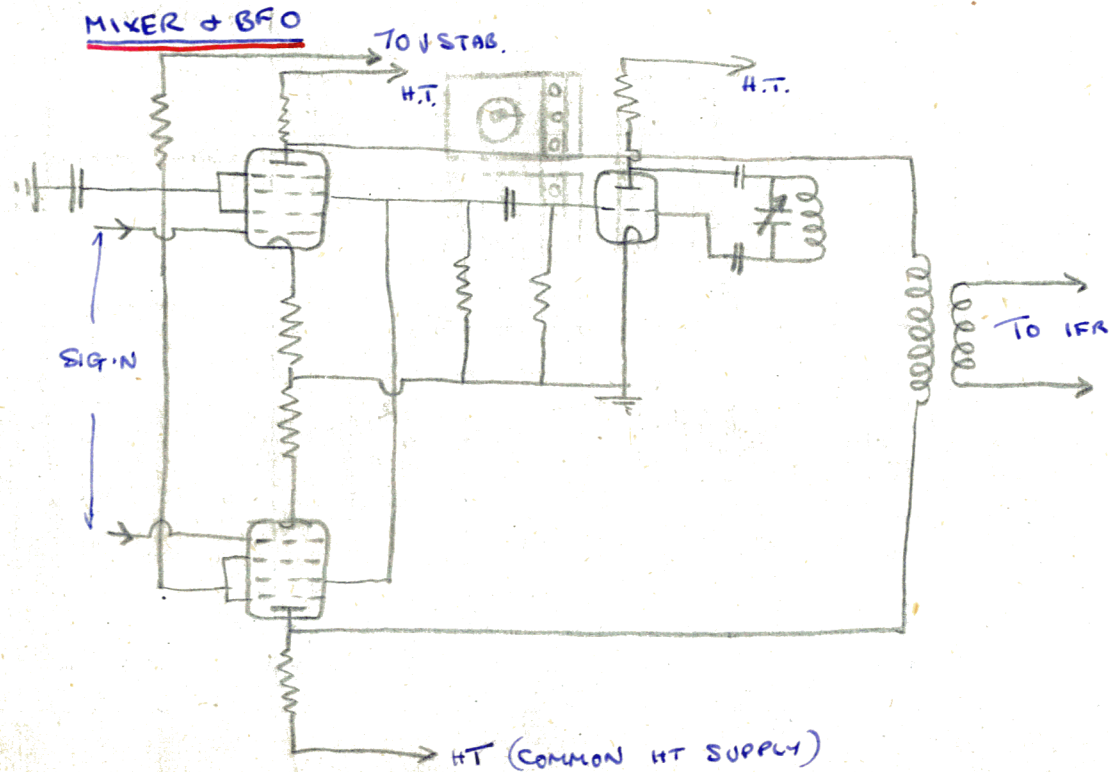 MIXER & BFO
TO V STAB.
H.T.
H.T.
SIG.N
TO IFR
HT (COMMON HT SUPPLY)